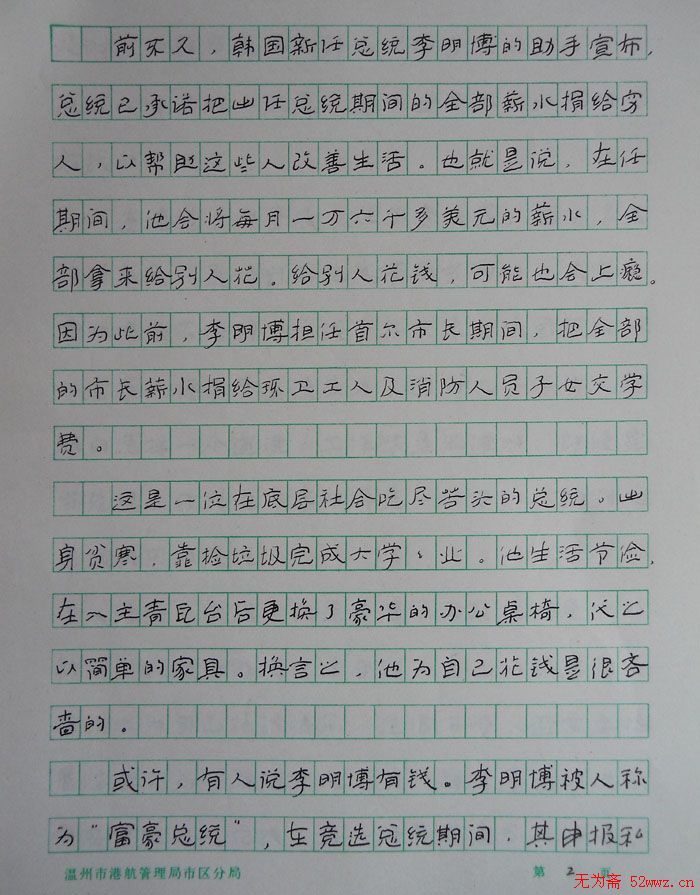 前不久，韩国新任总统李明博的助手宣布，
总统已承诺把出任总统期间的全部薪水捐给穷
人，以帮助这些人改善生活。也就是说，在任
期间，他会将每月一万六千多美元的薪水，全
部拿来给别人花。给别人花钱，可能也会上瘾。
因为此前，李明博担任首尔市长期间，把全部
的市长薪水捐给环卫工人及消防人员子女交学
费。
这是一位在底层社会吃尽苦头的总统。出
身贫寒，靠捡垃圾完成大学学业。他生活节俭，
在入主青瓦台后更换了豪华的办公桌椅，代之
以简单的家具。换言之，他为自己花钱是很吝
啬的。
或许，有人说李明博有钱。李明博被人称
为“富豪总统”，在竞选总统期间，其申报私
温州市港航管理局市区分局
第 2 页
无为斋 52wwz.cn